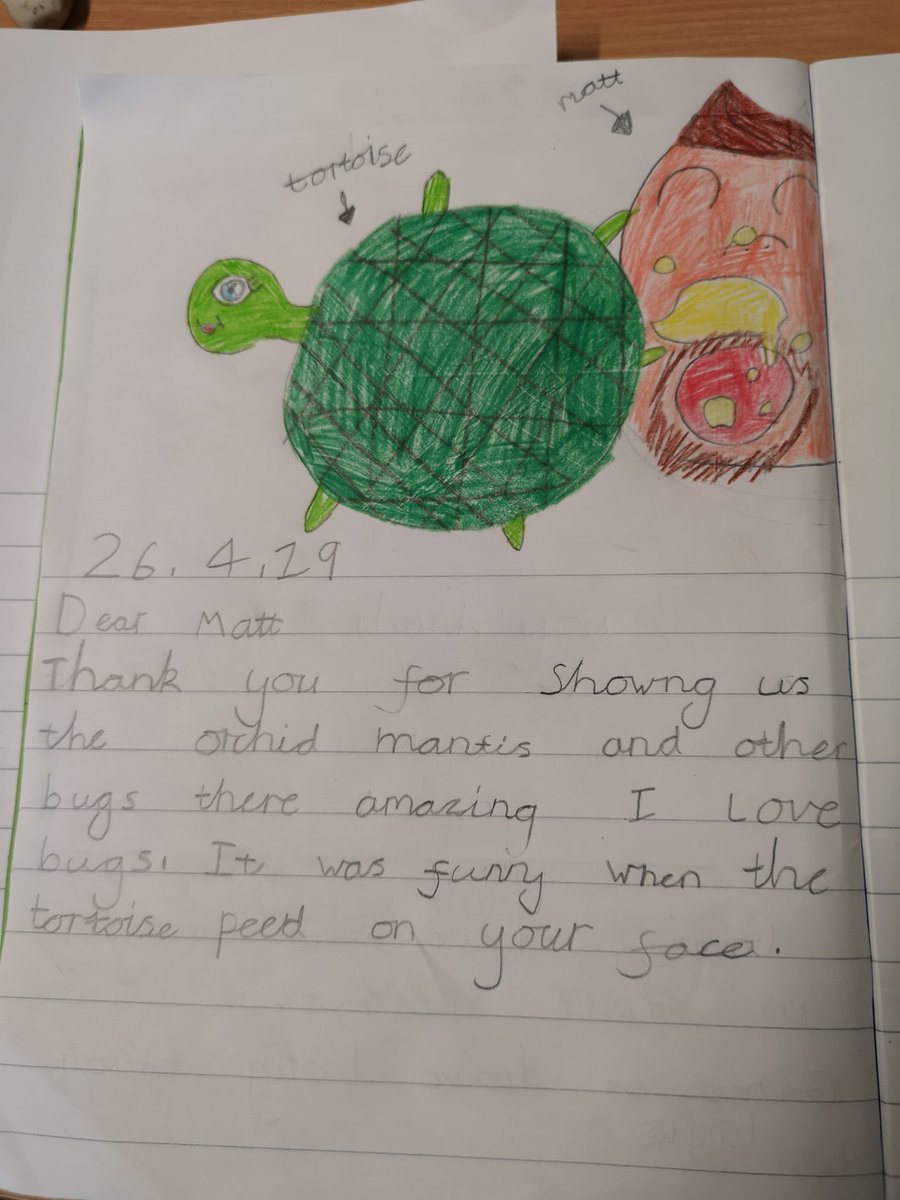 matt
tortoise
26.4.19
Dear Matt
Thank you for Showng us
the orchid mantis and other
bugs there amazing I Love
bugs. It was funny when the
tortoise peed on your face.